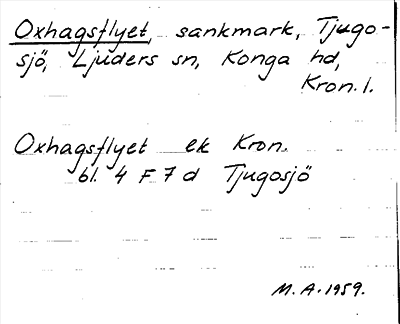 Oxhagsflyet, sankmark, Tjugo-
sjö, Ljuders sn, Konga hd,
Kron. l.
Oxhagsflyet ek Kron.
bl. 4 F 7 d Tjugosjö
M. A. 1959.